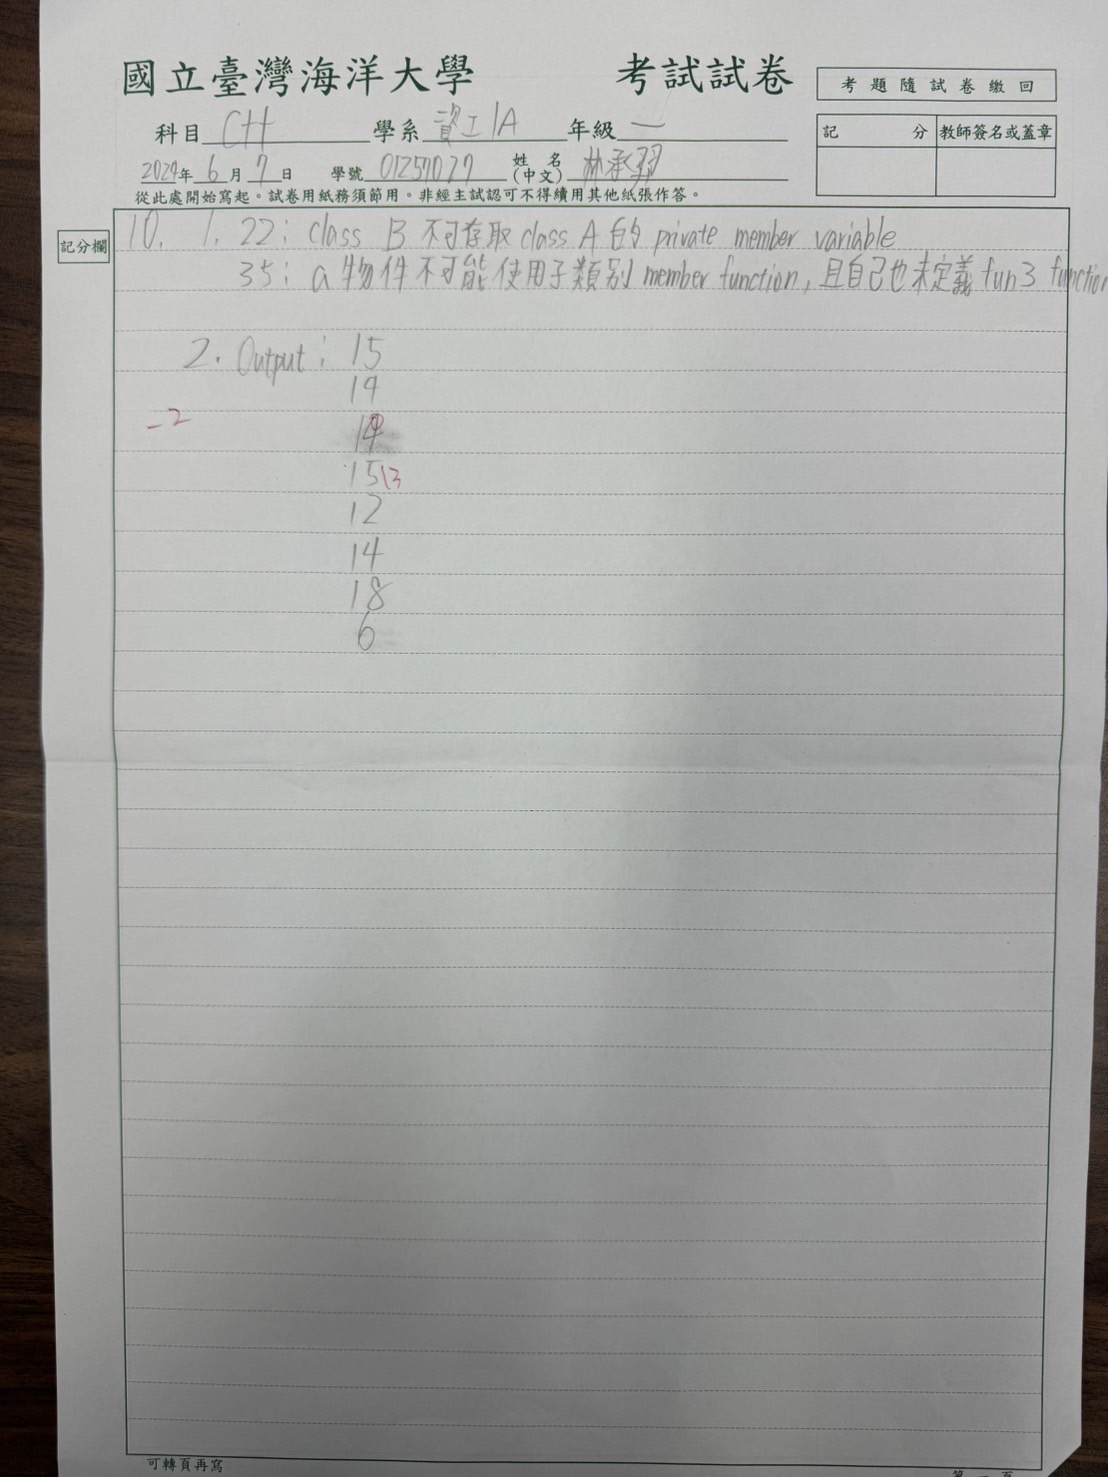 國立臺灣海洋大學 考試試卷
考題隨試卷繳回
科目 C++ 學系 資工1A 年級 一
記分 教師簽名或蓋章
2024年 6月 7日 學號 01257027 姓名(中文) 林承羿
從此處開始寫起。試卷用紙務須節用。非經主試認可不得續用其他紙張作答。
記分欄
10. 1. 22: class B 不可存取 class A 的 private member variable
35: a 物件不可能使用子類別 member function, 且自己也未定義 fun3 function
2. Output: 15
14
-2
15 13
12
14
18
6
可轉頁再寫